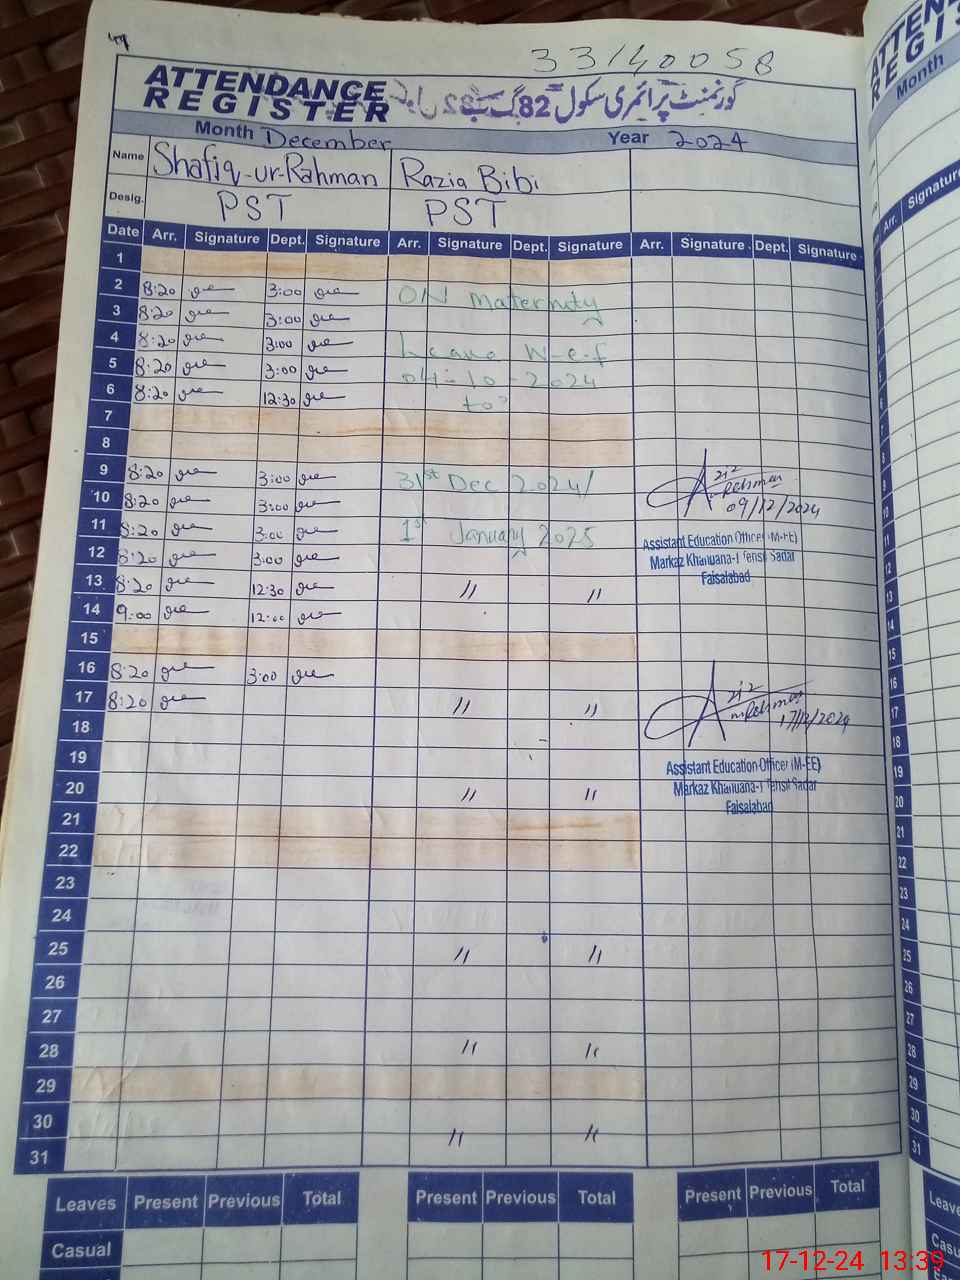 33140058
ATTENDANCE REGISTER
گورنمنٹ پرائمری سکول 82 گ ب
Month December Year 2024
Name Shafiq-ur-Rahman Razia Bibi
Desig. PST PST
Date Arr. Signature Dept. Signature Arr. Signature Dept. Signature Arr. Signature Dept. Signature
1
2 8:20 3:00 ON Maternity
3 8:20 3:00
4 8:20 3:00 Leave W-e-f
5 8:20 3:00 04-10-2024
6 8:20 12:30 to
7
8
9 8:20 3:00 31st Dec 2024/
10 8:20 3:00 09/12/2024
11 8:20 3:00 1st January 2025
Assistant Education Officer (M-EE)
12 8:20 3:00
Markaz Khanuana-I Tehsil Sadar
Faisalabad
13 8:20 12:30 〃 〃
14 9:00 12:00
15
16 8:20 3:00
17 8:20 〃 〃 17/12/2024
18
19
Assistant Education Officer (M-EE)
Markaz Khanuana-I Tehsil Sadar
20 〃 〃
Faisalabad
21
22
23
24
25 〃 〃
26
27
28 〃 〃
29
30 〃 〃
31
Leaves Present Previous Total Present Previous Total Present Previous Total
Casual
ATTEN
REG
Month
Arr. Signature
5
6
7
8
9
10
11
12
13
14
15
16
17
18
19
20
21
22
23
24
25
26
27
28
29
30
31
Leave
Casu
17-12-24 13:39